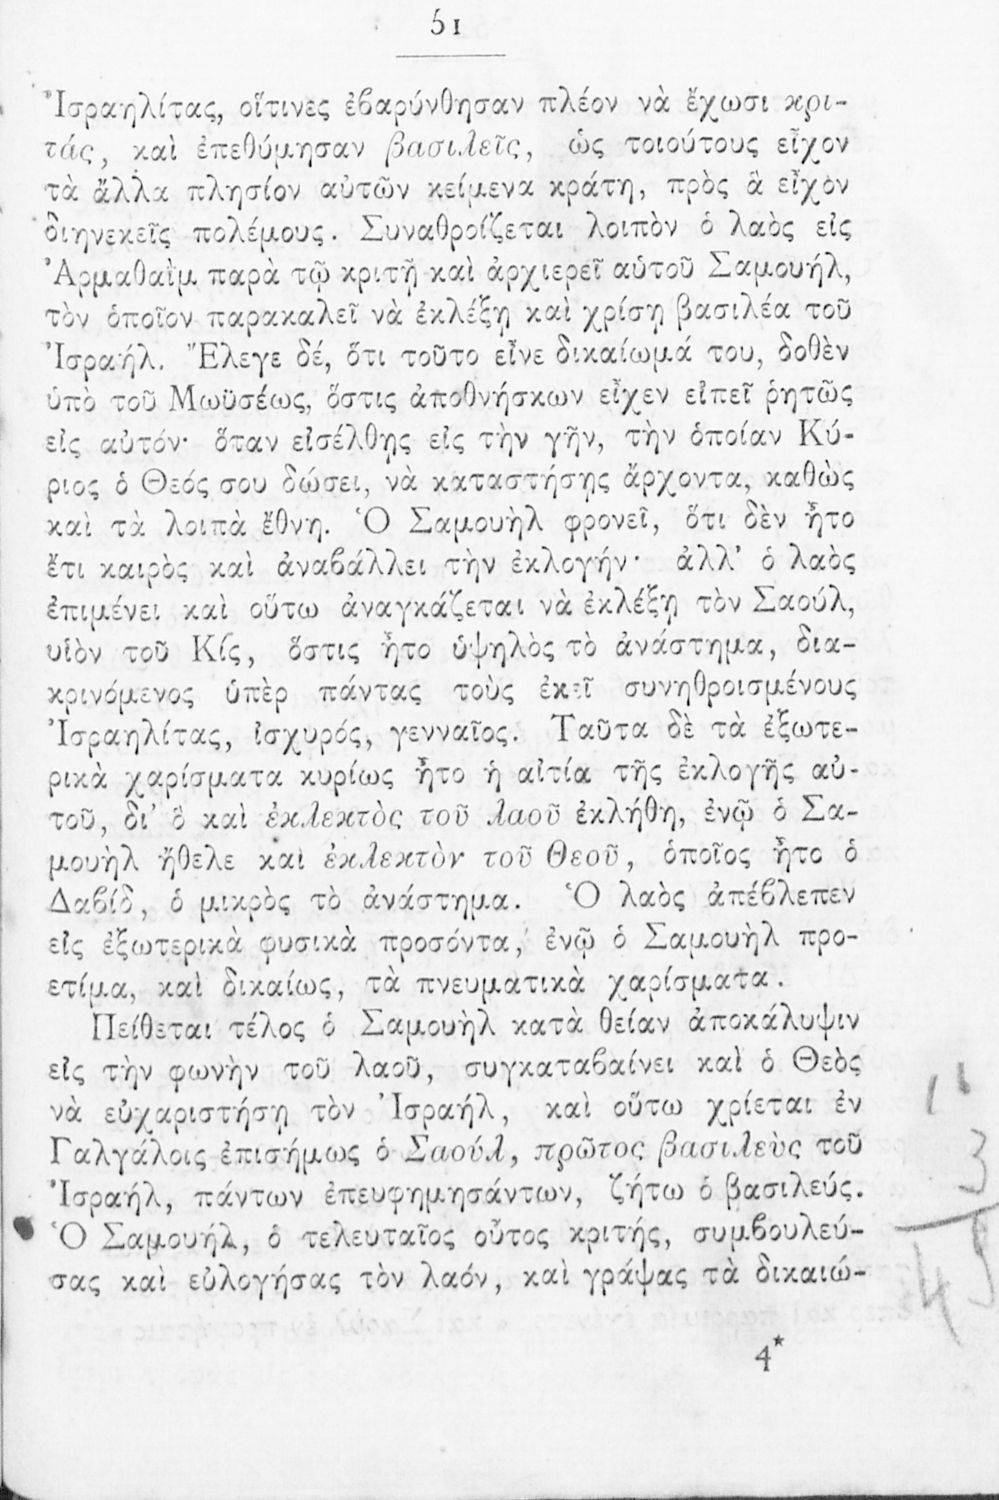 51
Ἰσραηλίτας, οἵτινες ἐβαρύνθησαν πλέον νὰ ἔχωσι κρι-
τάς, καὶ ἐπεθύμησαν βασιλεῖς, ὡς τοιούτους εἶχον
τὰ ἄλλα πλησίον αὐτῶν κείμενα κράτη, πρὸς ἃ εἶχον
διηνεκεῖς πολέμους. Συναθροίζεται λοιπὸν ὁ λαὸς εἰς
Ἀρμαθαῒμ παρὰ τῷ κριτῇ καὶ ἀρχιερεῖ αὑτοῦ Σαμουήλ,
τὸν ὁποῖον παρακαλεῖ νὰ ἐκλέξῃ καὶ χρίσῃ βασιλέα τοῦ
Ἰσραήλ. Ἔλεγε δέ, ὅτι τοῦτο εἶνε δικαίωμά του, δοθὲν
ὑπὸ τοῦ Μωϋσέως, ὅστις ἀποθνήσκων εἶχεν εἰπεῖ ῥητῶς
εἰς αὐτόν· ὅταν εἰσέλθῃς εἰς τὴν γῆν, τὴν ὁποίαν Κύ-
ριος ὁ Θεός σου δώσει, νὰ καταστήσῃς ἄρχοντα, καθὼς
καὶ τὰ λοιπὰ ἔθνη. Ὁ Σαμουὴλ φρονεῖ, ὅτι δὲν ἦτο
ἔτι καιρὸς καὶ ἀναβάλλει τὴν ἐκλογήν· ἀλλ’ ὁ λαὸς
ἐπιμένει καὶ οὕτω ἀναγκάζεται νὰ ἐκλέξῃ τὸν Σαούλ,
υἱὸν τοῦ Κίς, ὅστις ἦτο ὑψηλὸς τὸ ἀνάστημα, δια-
κρινόμενος ὑπὲρ πάντας τοὺς ἐκεῖ συνηθροισμένους
Ἰσραηλίτας, ἰσχυρός, γενναῖος. Ταῦτα δὲ τὰ ἐξωτε-
ρικὰ χαρίσματα κυρίως ἦτο ἡ αἰτία τῆς ἐκλογῆς αὐ-
τοῦ, δι’ ὃ καὶ ἐκλεκτὸς τοῦ λαοῦ ἐκλήθη, ἐνῷ ὁ Σα-
μουὴλ ἤθελε καὶ ἐκλεκτὸν τοῦ Θεοῦ, ὁποῖος ἦτο ὁ
Δαβίδ, ὁ μικρὸς τὸ ἀνάστημα. Ὁ λαὸς ἀπέβλεπεν
εἰς ἐξωτερικὰ φυσικὰ προσόντα, ἐνῷ ὁ Σαμουὴλ προ-
ετίμα, καὶ δικαίως, τὰ πνευματικὰ χαρίσματα.
Πείθεται τέλος ὁ Σαμουὴλ κατὰ θείαν ἀποκάλυψιν
εἰς τὴν φωνὴν τοῦ λαοῦ, συγκαταβαίνει καὶ ὁ Θεὸς
νὰ εὐχαριστήσῃ τὸν Ἰσραήλ, καὶ οὕτω χρίεται ἐν
Γαλγάλοις ἐπισήμως ὁ Σαούλ, πρῶτος βασιλεὺς τοῦ
Ἰσραήλ, πάντων ἐπευφημησάντων, ζήτω ὁ βασιλεύς.
Ὁ Σαμουήλ, ὁ τελευταῖος οὗτος κριτής, συμβουλεύ-
σας καὶ εὐλογήσας τὸν λαόν, καὶ γράψας τὰ δικαιώ-
4*